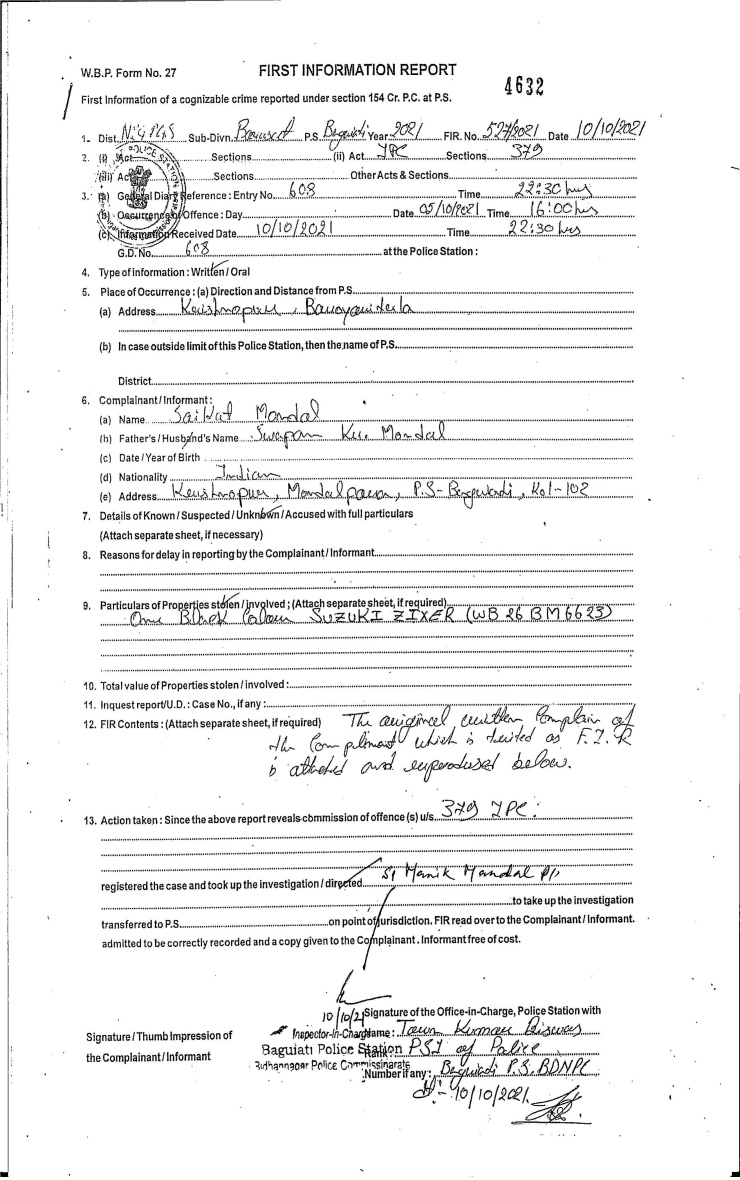 W.B.P. Form No. 27
FIRST INFORMATION REPORT
4632
First Information of a cognizable crime reported under section 154 Cr. P.C. at P.S.
1. Dist. N24PGS Sub-Divn. Barasat P.S. Baguiati Year 2021 FIR. No. 527/2021 Date 10/10/2021
2. (i) Act Sections (ii) Act IPC Sections 379
(iii) Act Sections Other Acts & Sections
3. (a) General Diary Reference : Entry No. 608 Time 22:30 hrs
(b) Occurrence of Offence : Day Date 05/10/2021 Time 16:00 hrs
(c) Information Received Date 10/10/2021 Time 22:30 hrs
G.D. No. 608 at the Police Station :
4. Type of information : Written / Oral
5. Place of Occurrence : (a) Direction and Distance from P.S.
(a) Address Krishnapur,
(b) In case outside limit of this Police Station, then the name of P.S.
District
6. Complainant / Informant :
(a) Name Saikat Mondal
(b) Father's / Husband's Name Swapan Kr. Mondal
(c) Date / Year of Birth
(d) Nationality Indian
(e) Address Krishnapur, Mondalpara, P.S- Baguiati, Kol-102
7. Details of Known / Suspected / Unknown / Accused with full particulars
(Attach separate sheet, if necessary)
8. Reasons for delay in reporting by the Complainant / Informant
9. Particulars of Properties stolen / involved ; (Attach separate sheet, if required)
One Black Colour SUZUKI ZIXER (WB 26 BM 6623)
10. Total value of Properties stolen / involved :
11. Inquest report / U.D. : Case No., if any :
12. FIR Contents : (Attach separate sheet, if required) The original written Complain of
the Compliment which is treated as F.I.R
is attached and reproduced below.
13. Action taken : Since the above report reveals commission of offence (s) u/s. 379 IPC.
registered the case and took up the investigation / directed SI Manik Mandal
to take up the investigation
transferred to P.S. on point of jurisdiction. FIR read over to the Complainant / Informant.
admitted to be correctly recorded and a copy given to the Complainant. Informant free of cost.
10/10/21 Signature of the Office-in-Charge, Police Station with
Signature / Thumb Impression of
the Complainant / Informant
Inspector-In-Charge Name : Tarun Kumar Biswas
Baguiati Police Station Rank : PSI of Police
Bidhannagar Police Commissionarate Number if any : Baguiati P.S. BDNPC
10/10/2021.